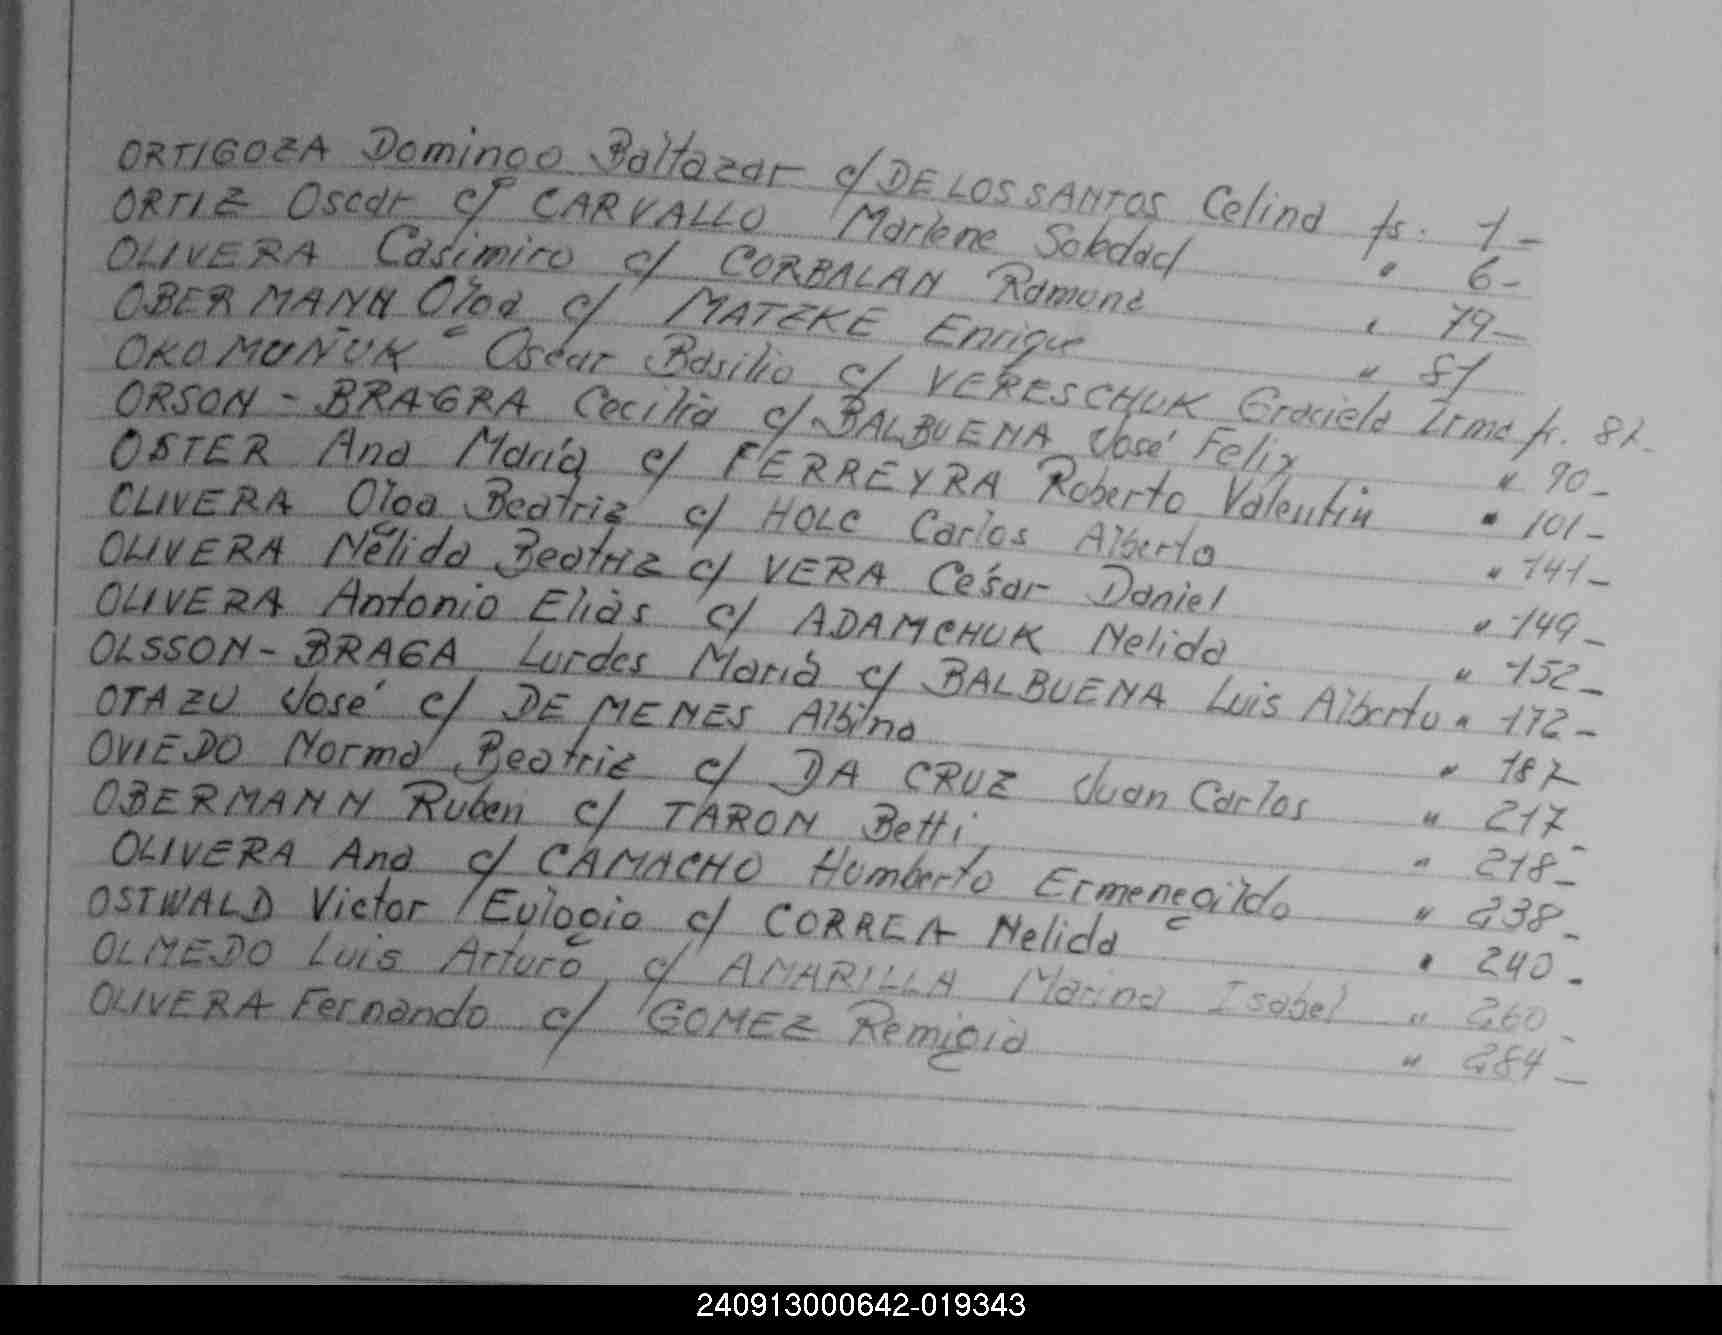 ORTIGOZA Domingo Baltazar c/ DE LOS SANTOS Celina fs. 1-
ORTIZ Oscar c/ CARVALLO Marlene Soledad " 6-
OLIVERA Casimiro c/ CORBALAN Ramona " 79-
OBERMANN Olga c/ MATZKE Enrique " 81
OKOMUÑUK Oscar Basilio c/ VERESCHUK Graciela Irma fs. 82-
ORSON - BRAGRA Cecilia c/ BALBUENA José Felix " 90-
OSTER Ana María c/ FERREYRA Roberto Valentin " 101-
OLIVERA Olga Beatriz c/ HOLC Carlos Alberto " 141-
OLIVERA Nélida Beatriz c/ VERA César Daniel " 149-
OLIVERA Antonio Eliàs c/ ADAMCHUK Nelida " 152-
OLSSON - BRAGA Lurdes Marià c/ BALBUENA Luis Alberto " 172-
OTAZU José c/ DE MENES Albina " 187
OVIEDO Norma Beatriz c/ DA CRUZ Juan Carlos " 217-
OBERMANN Ruben c/ TARON Betti " 218-
OLIVERA Ana c/ CAMACHO Humberto Ermenegildo " 238-
OSTWALD Victor Eulogio c/ CORREA Nelida " 240-
OLMEDO Luis Arturo c/ AMARILLA Marina Isabel " 260-
OLIVERA Fernando c/ GOMEZ Remigia " 284-
240913000642-019343